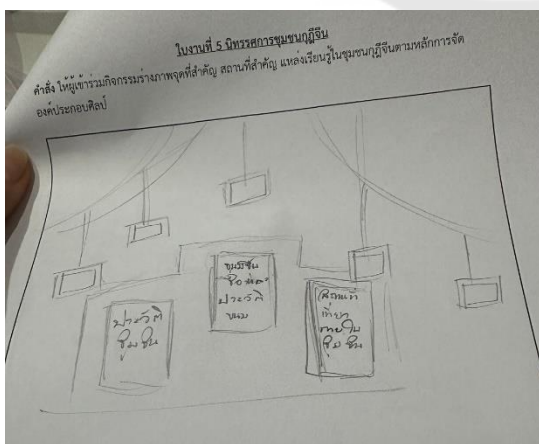 ใบงานที่ 5 นิทรรศการชุมชนกุฎีจีน
คำสั่ง ให้ผู้เข้าร่วมกิจกรรมร่างภาพจุดที่สำคัญ สถานที่สำคัญ แหล่งเรียนรู้ในชุมชนกุฎีจีนตามหลักการจัด
องค์ประกอบศิลป์
ประวัติ
ขนม
ประวัติ
ชุมชน
สถานที่
เที่ยว
ภายใน
ชุมชน